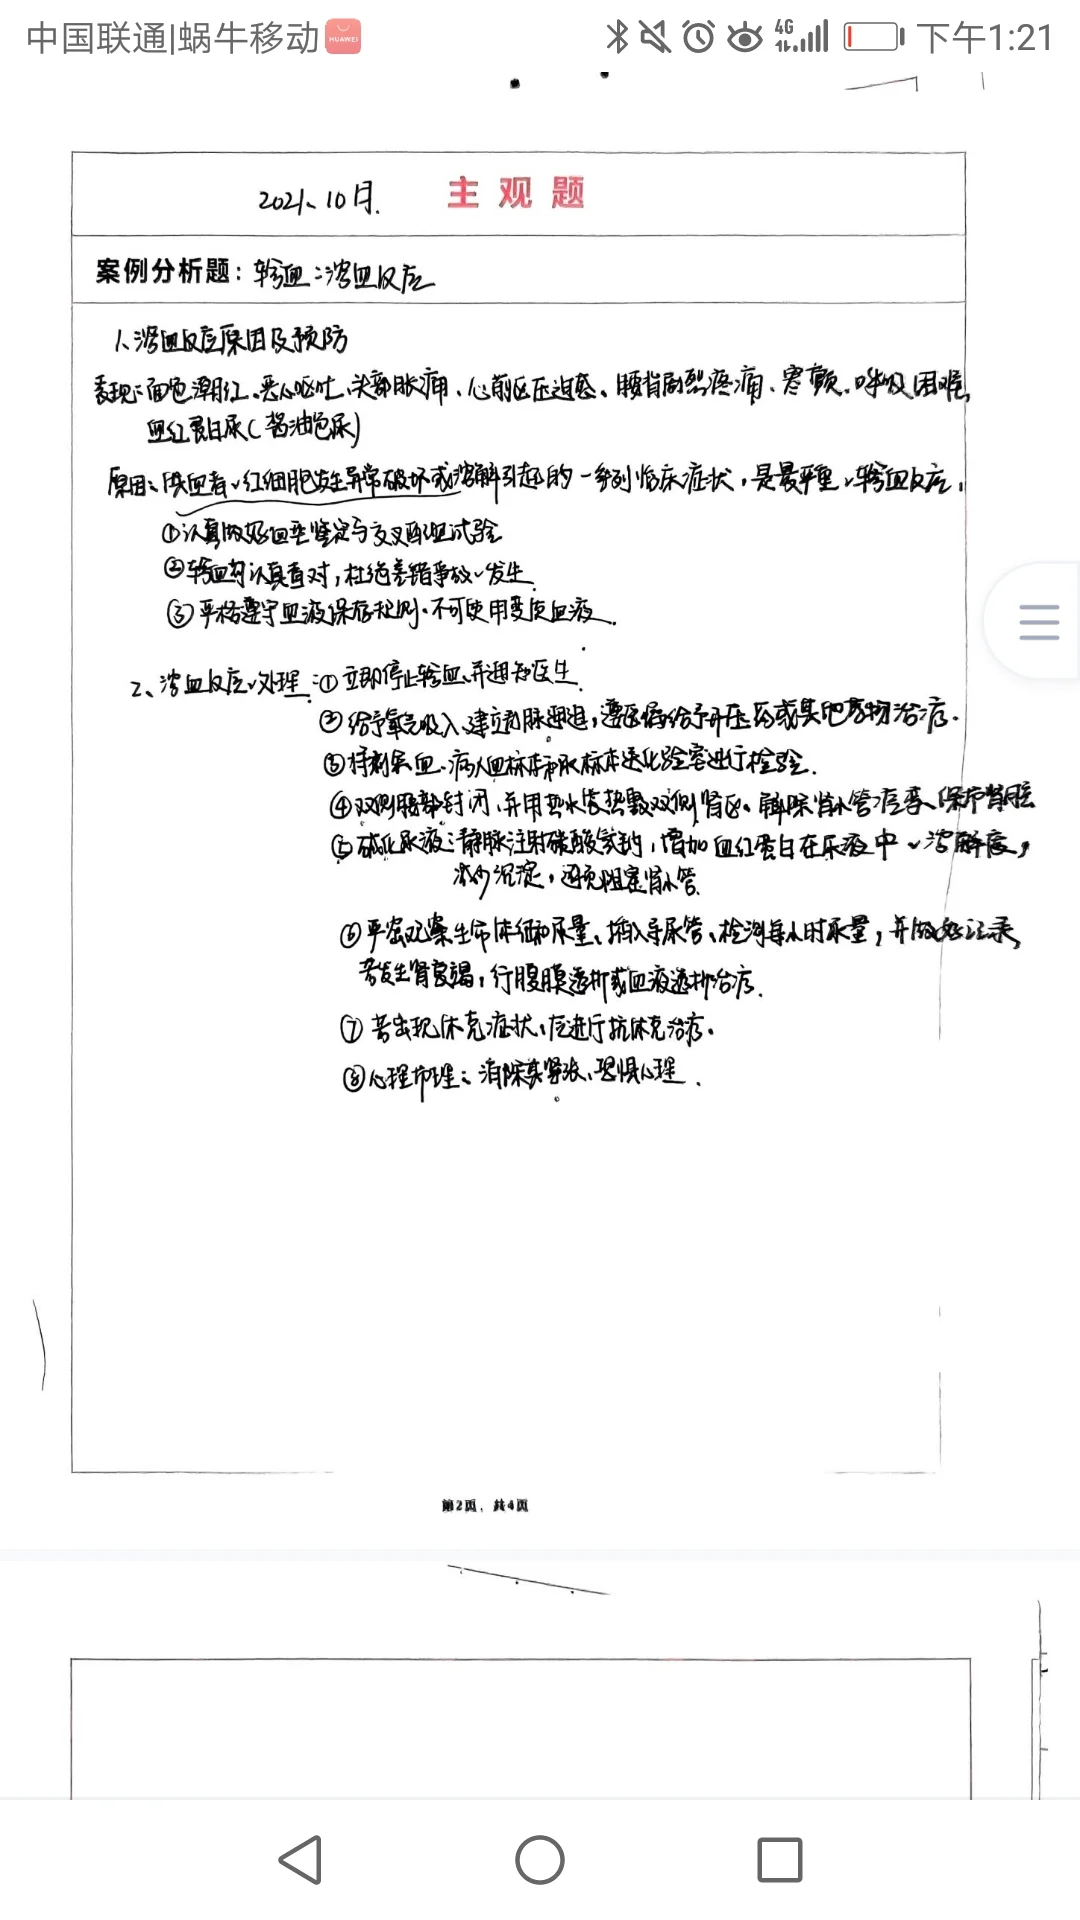 中国联通|蜗牛移动 HUAWEI 4G 下午1:21
2021、10月. 主观题
案例分析题：输血：溶血反应
1、溶血反应原因及预防
表现：面色潮红、恶心呕吐、头部胀痛、心前区压迫感、腰背剧烈疼痛、寒颤、呼吸困难
血红蛋白尿（酱油色尿）
原因：供血者、红细胞发生异常破坏或溶解引起的一系列临床症状，是最严重、输血反应，
①认真做好血型鉴定与交叉配血试验
②输血时认真查对，杜绝差错事故、发生.
③严格遵守血液保存规则、不可使用变质血液.
2、溶血反应、处理：①立即停止输血、并通知医生.
②给予氧气吸入、建立静脉通道，遵医嘱给予升压药或其他药物治疗.
③将剩余血、病人血标本和尿标本送化验室进行检验.
④双侧腰部封闭、并用热水袋热敷双侧肾区、解除肾小管痉挛、保护肾脏
⑤碱化尿液：静脉注射碳酸氢钠，增加血红蛋白在尿液中、溶解度，
减少沉淀，避免阻塞肾小管.
⑥严密观察生命体征和尿量、插入导尿管、检测每小时尿量，并做好记录，
若发生肾衰竭，行腹膜透析或血液透析治疗.
⑦若出现休克症状，应进行抗休克治疗.
⑧心理护理：消除其紧张、恐惧心理.
第2页，共4页